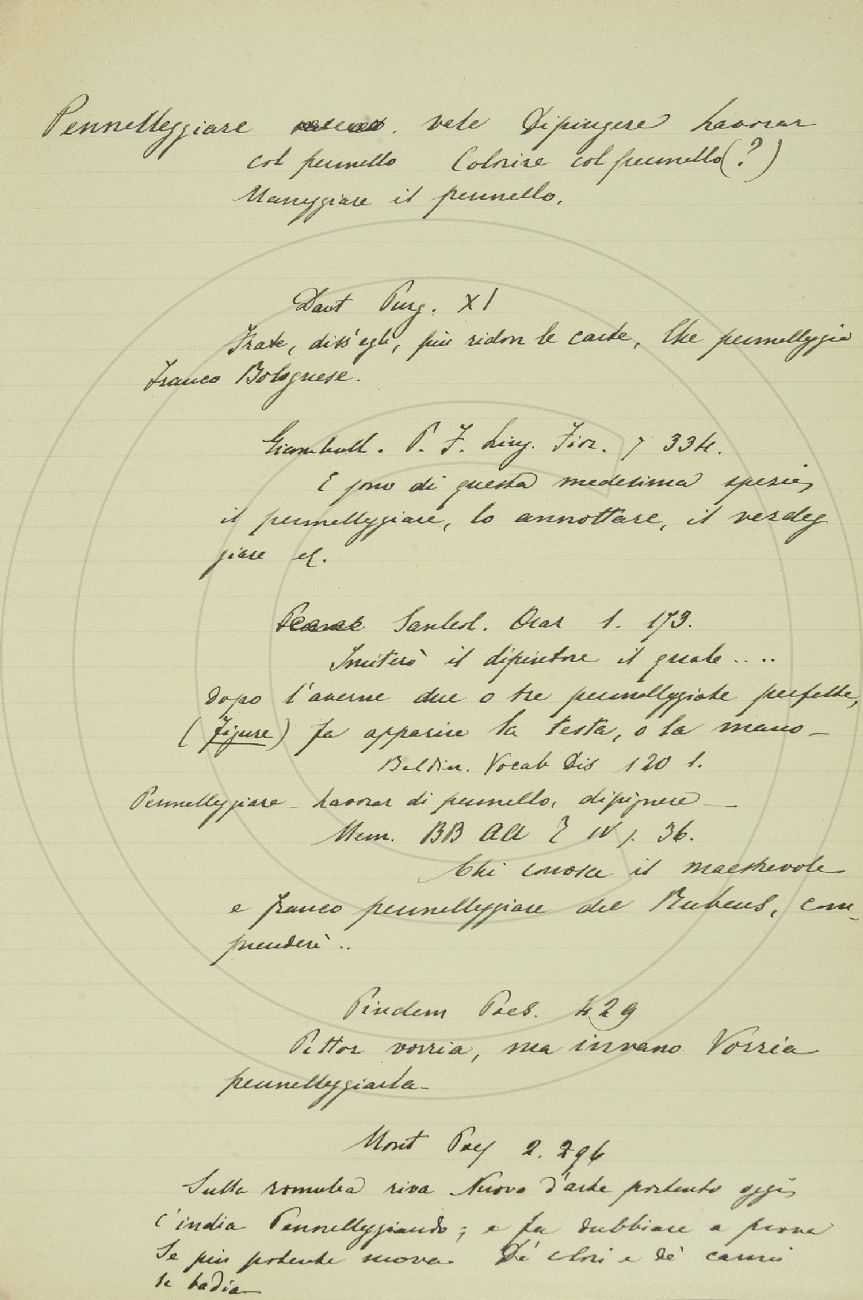 Pennelleggiare vale Dipingere Lavorar
col pennello Colorire col pennello (?)
Maneggiare il pennello.
Dant Purg. XI
Frate, diss'egli, più ridon le carte, Che pennelleggia
Franco Bolognese.
Giambull. P. F. Ling. Fior. 334.
E sono di questa medesima spezie,
il pennelleggiare, lo annottare, il verdeg
giare
Oraz 1. 173.
Imiterò il dipintore il quale....
Dopo l'averne due o tre pennelleggiate perfette,
(figure) fa apparire la testa, o la mano -
Baldin. Vocab Dis 120 1.
Pennelleggiare - Lavorar di pennello, dipignere -
Mem. BB AA IV p. 36.
Chi conosce il maestrevole
e franco pennelleggiare del Rubens, com-
prenderà ..
Pindem Poes. 429
Pittor vorria, ma invano Vorria
pennelleggiarla -
Mont Poes 2. 296
Sulla romulea riva Nuovo d'arte portento oggi
Pennelleggiando; e fa dubbiare a prova
Se più potente mova De' e de' carmi
la